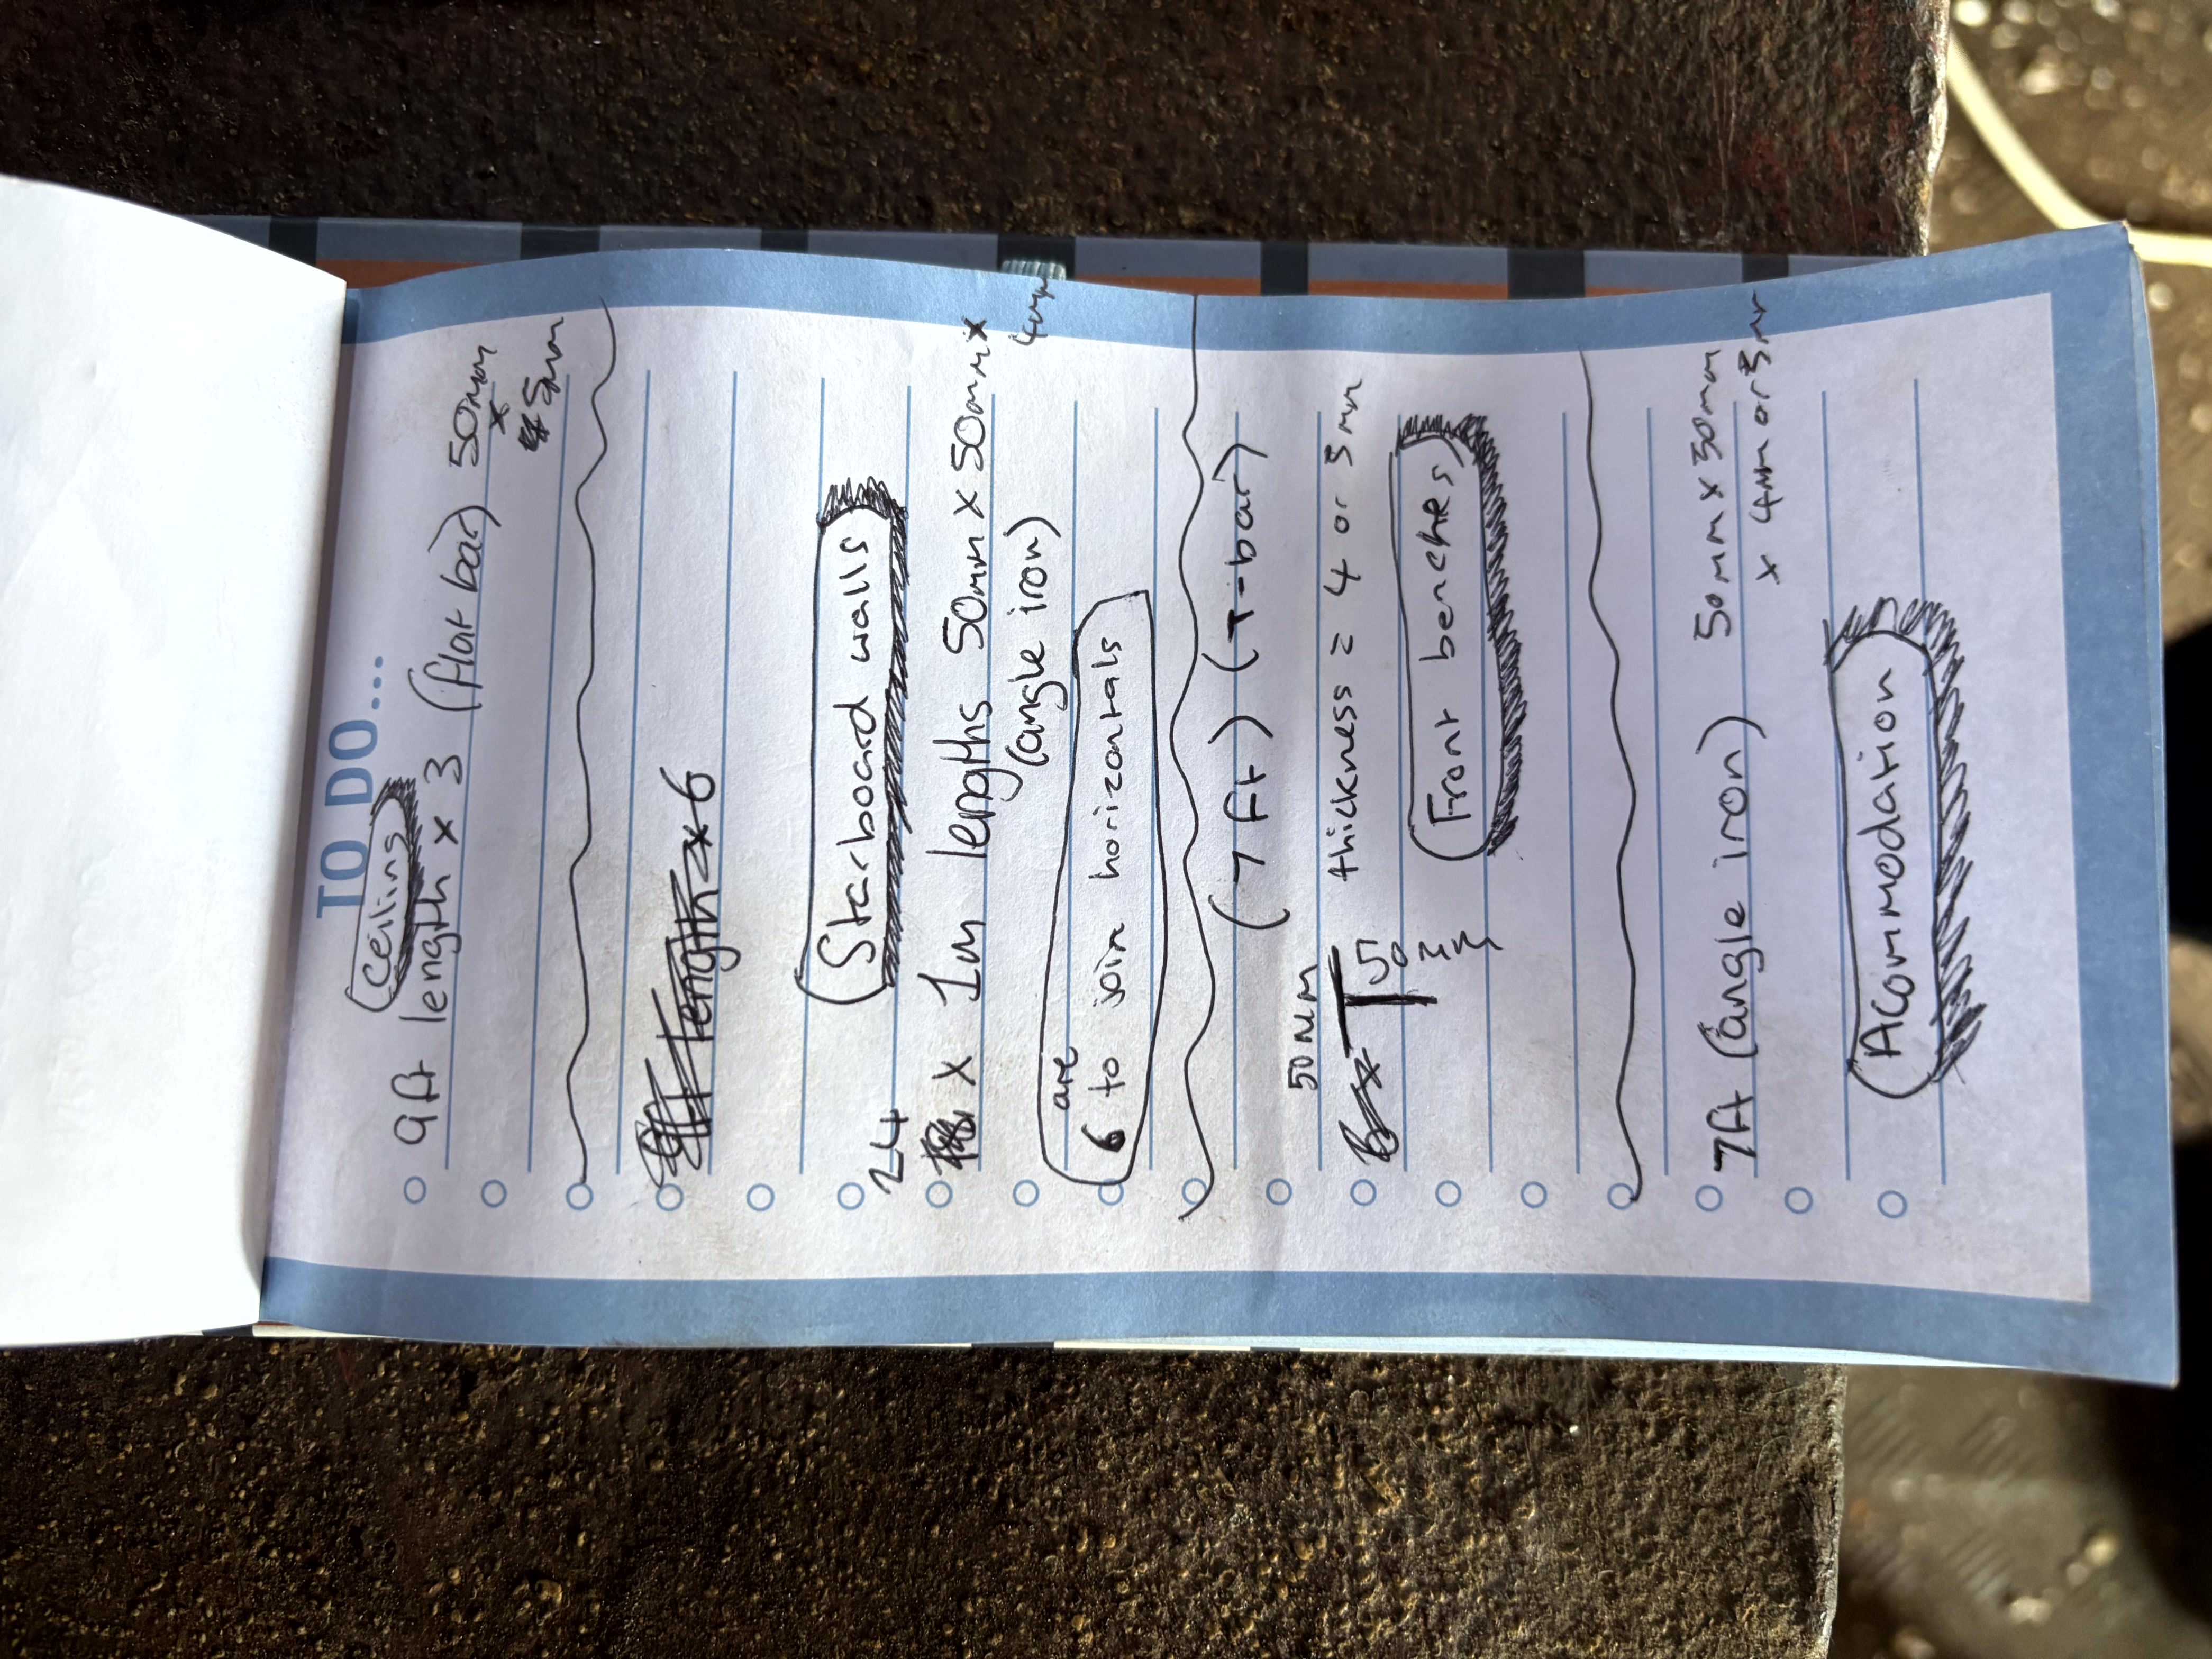 TO DO...
Ceiling
9ft length x 3 (flat bar) 50mm
x
5mm
length x 6
Starboard walls
24 x 1m lengths 50mm x 50mm x
4mm
(angle iron)
are
6 to join horizontals
(7 ft) (T-bar)
50mm
thickness = 4 or 3mm
50mm
Front benches
7ft (angle iron) 50mm x 50mm
x 4mm or 3mm
Acommodation